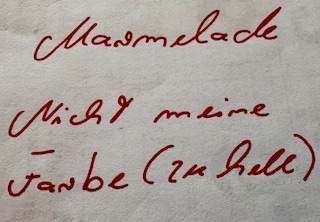 Marmelade
Nicht meine
Farbe (zu hell)